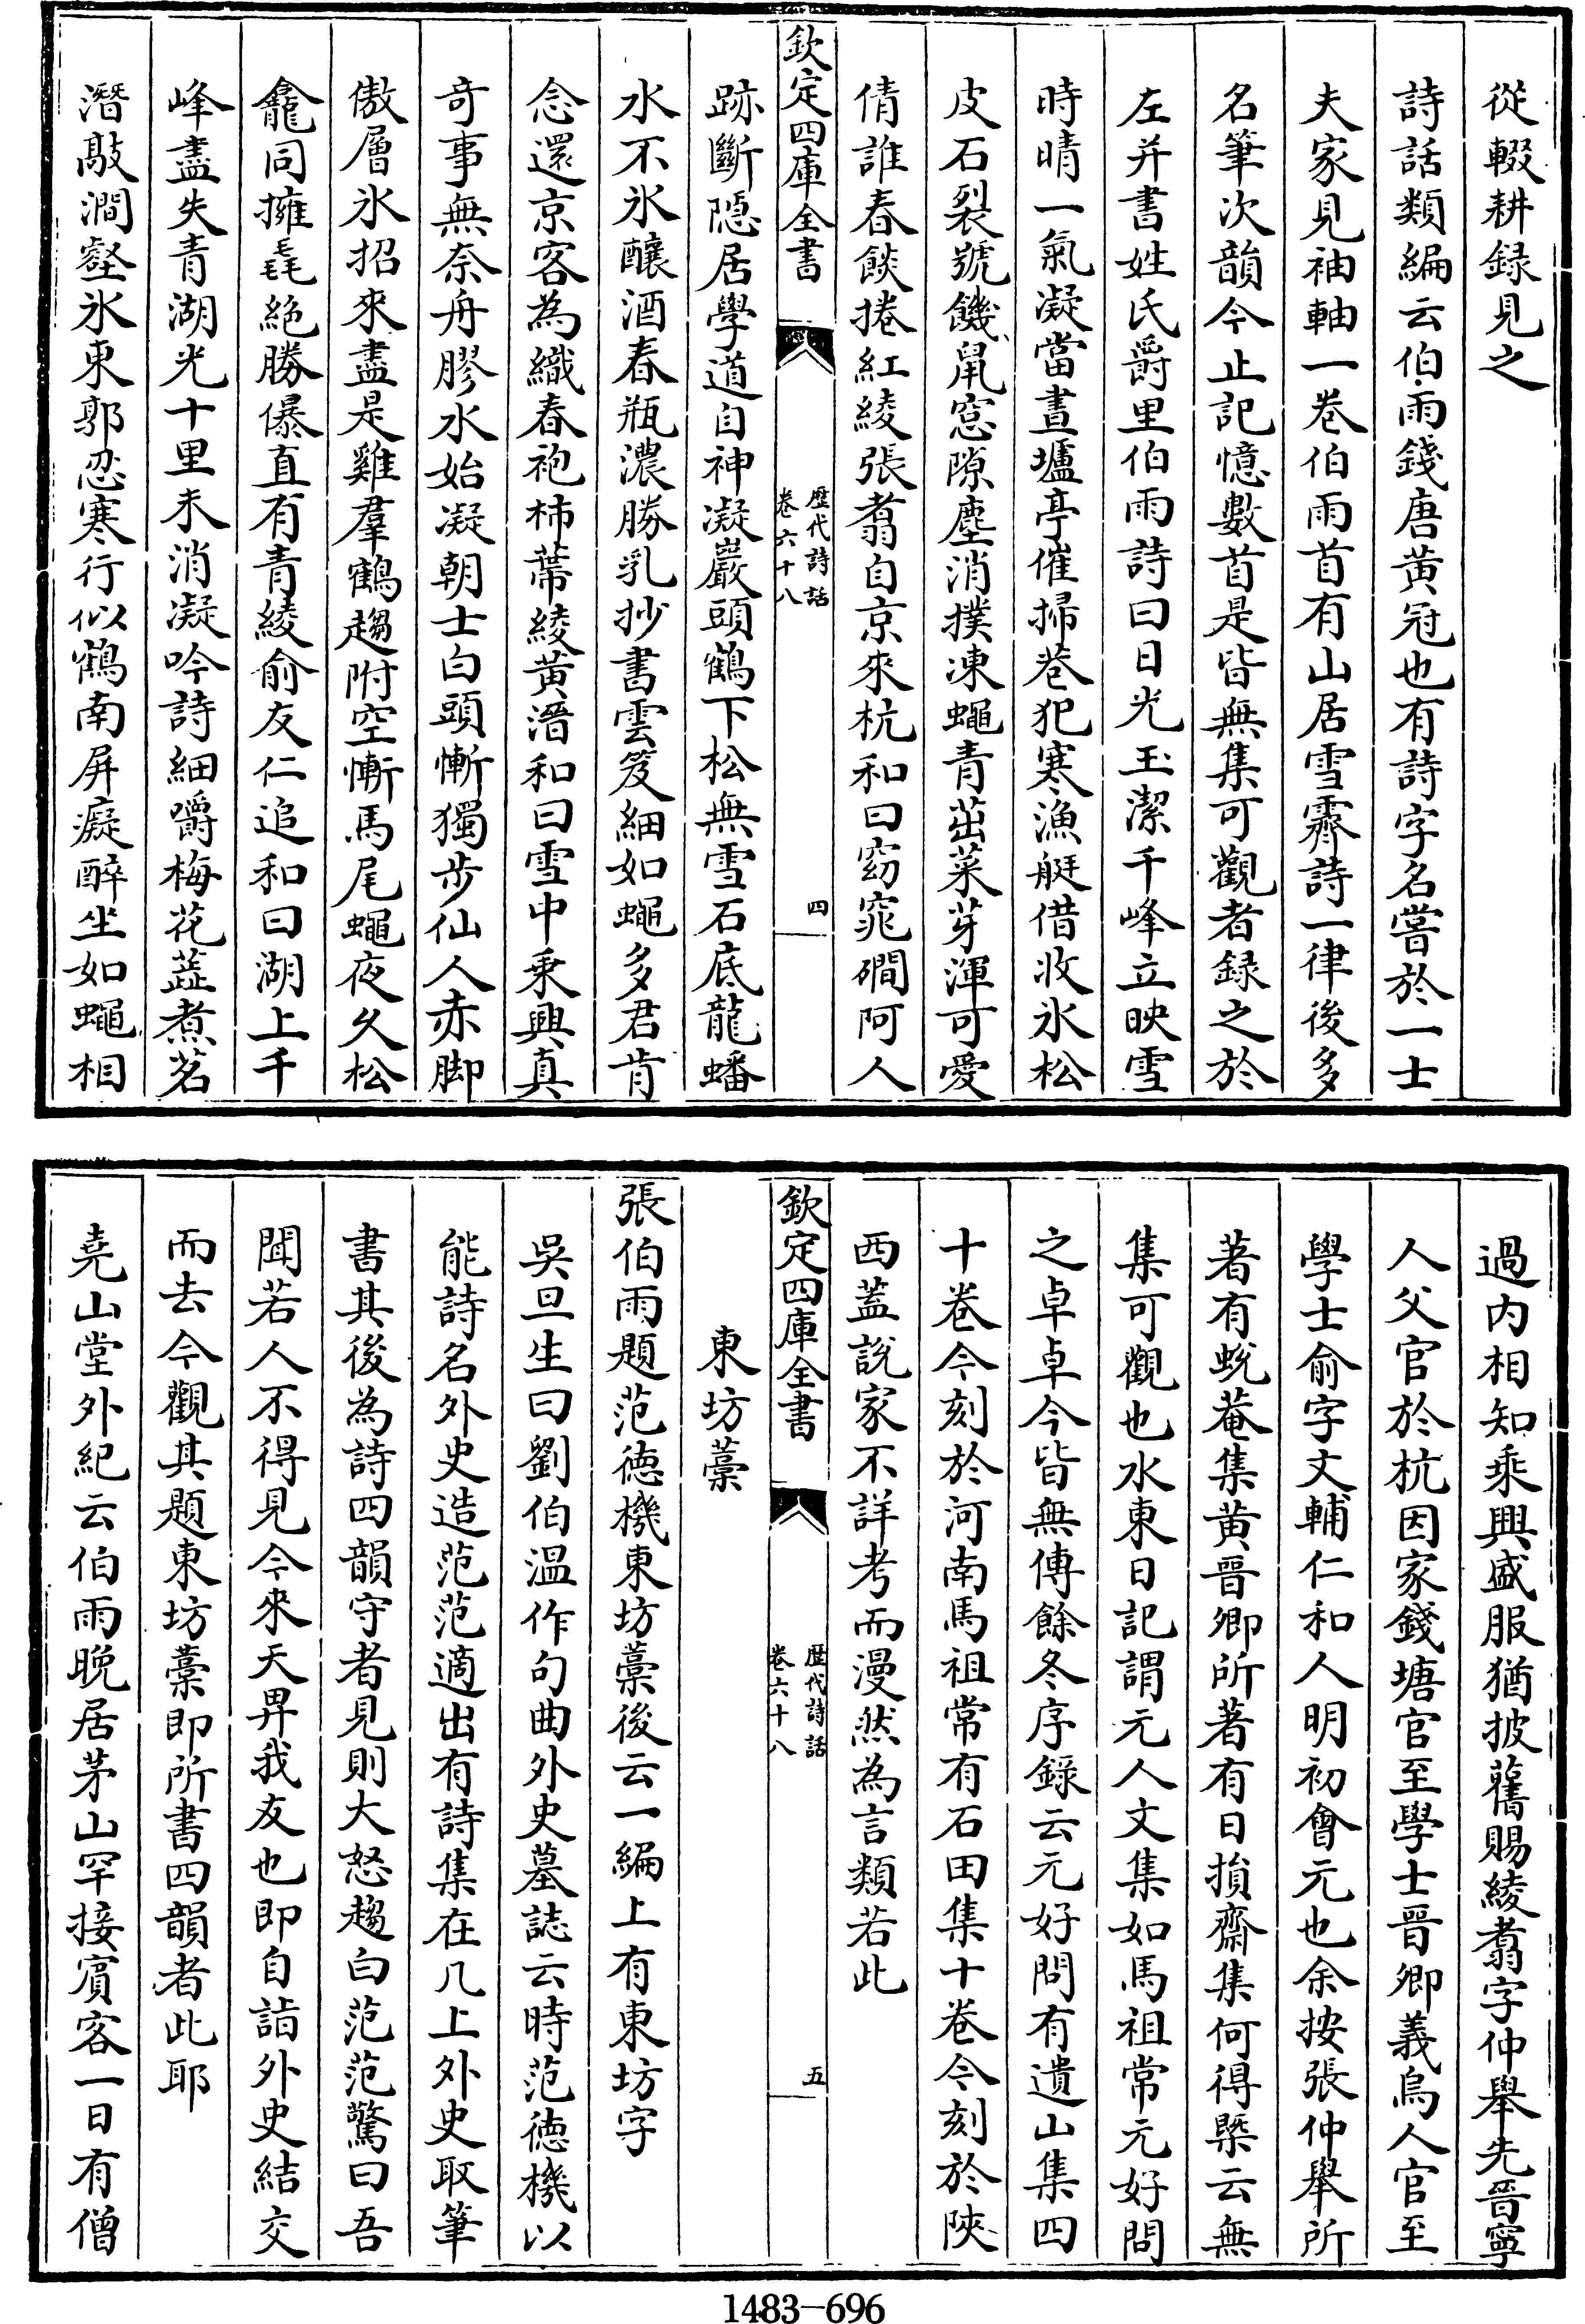 從輟耕録見之
詩話類編云伯雨錢唐黄冠也有詩字名嘗於一士
夫家見袖軸一卷伯雨首有山居雪霽詩一律後多
名筆次韻今止記憶數首是皆無集可觀者録之於
左并書姓氏爵里伯雨詩曰日光玉潔千峰立映雪
時晴一氣凝當晝壚亭催掃巷犯寒漁艇借收氷松
皮石裂號饑鼠窓隙塵消撲凍蠅青茁菜芽渾可愛
倩誰春餤捲紅綾張翥自京來杭和曰窈窕磵阿人
欽定四庫全書
歴代詩話
卷六十八
四
跡斷隠居學道自神凝巖頭鶴下松無雪石底龍蟠
水不氷釀酒春瓶濃勝乳抄書雲笈細如蠅多君肯
念還京客為織春袍柿蔕綾黄溍和曰雪中乗興真
竒事無奈舟膠水始凝朝士白頭慚獨步仙人赤脚
傲層氷招來盡是雞羣鶴趨附空慚馬尾蠅夜久松
龕同擁毳絶勝儤直有青綾俞友仁追和曰湖上千
峰盡失青湖光十里未消凝吟詩細嚼梅花蕋煮茗
潛敲澗壑氷東郭忍寒行似鶴南屏癡醉坐如蠅相
過内相知乘興盛服猶披舊賜綾翥字仲舉先晉寧
人父官於杭因家錢塘官至學士晉卿義烏人官至
學士俞字文輔仁和人明初會元也余按張仲舉所
著有蛻菴集黄晉卿所著有日損齋集何得槩云無
集可觀也水東日記謂元人文集如馬祖常元好問
之卓卓今皆無傳餘冬序録云元好問有遺山集四
十卷今刻於河南馬祖常有石田集十卷今刻於陜
西蓋說家不詳考而漫然為言類若此
欽定四庫全書
歴代詩話
卷六十八
五
東坊藁
張伯雨題范徳機東坊藁後云一編上有東坊字
吳旦生曰劉伯溫作句曲外史墓誌云時范徳機以
能詩名外史造范范適出有詩集在几上外史取筆
書其後為詩四韻守者見則大怒趨白范范驚曰吾
聞若人不得見今來天畀我友也即自詣外史結交
而去今觀其題東坊藁即所書四韻者此耶
堯山堂外紀云伯雨晚居茅山罕接賓客一日有僧
1483—696